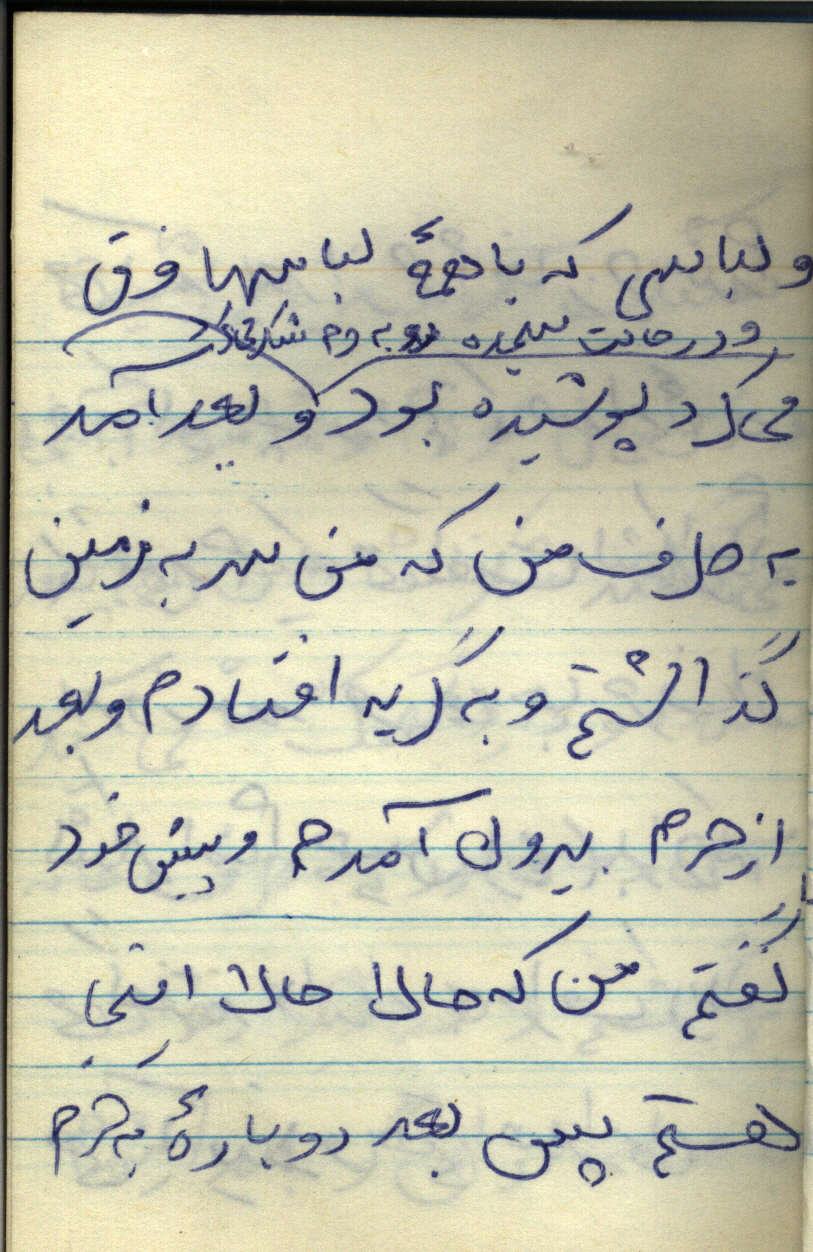 و لباسی که با همهٔ لباسها فرق
و در حالت سجده
می‌کرد پوشیده بود و بعد آمد
به طرف من که من سر به زمین
گذاشتم و به گریه افتادم و بعد
از حرم بیرون آمدم و پیش خود
گفتم من که حالا حالا اینجا
هستم پس بعد دوبارهٔ به حرم